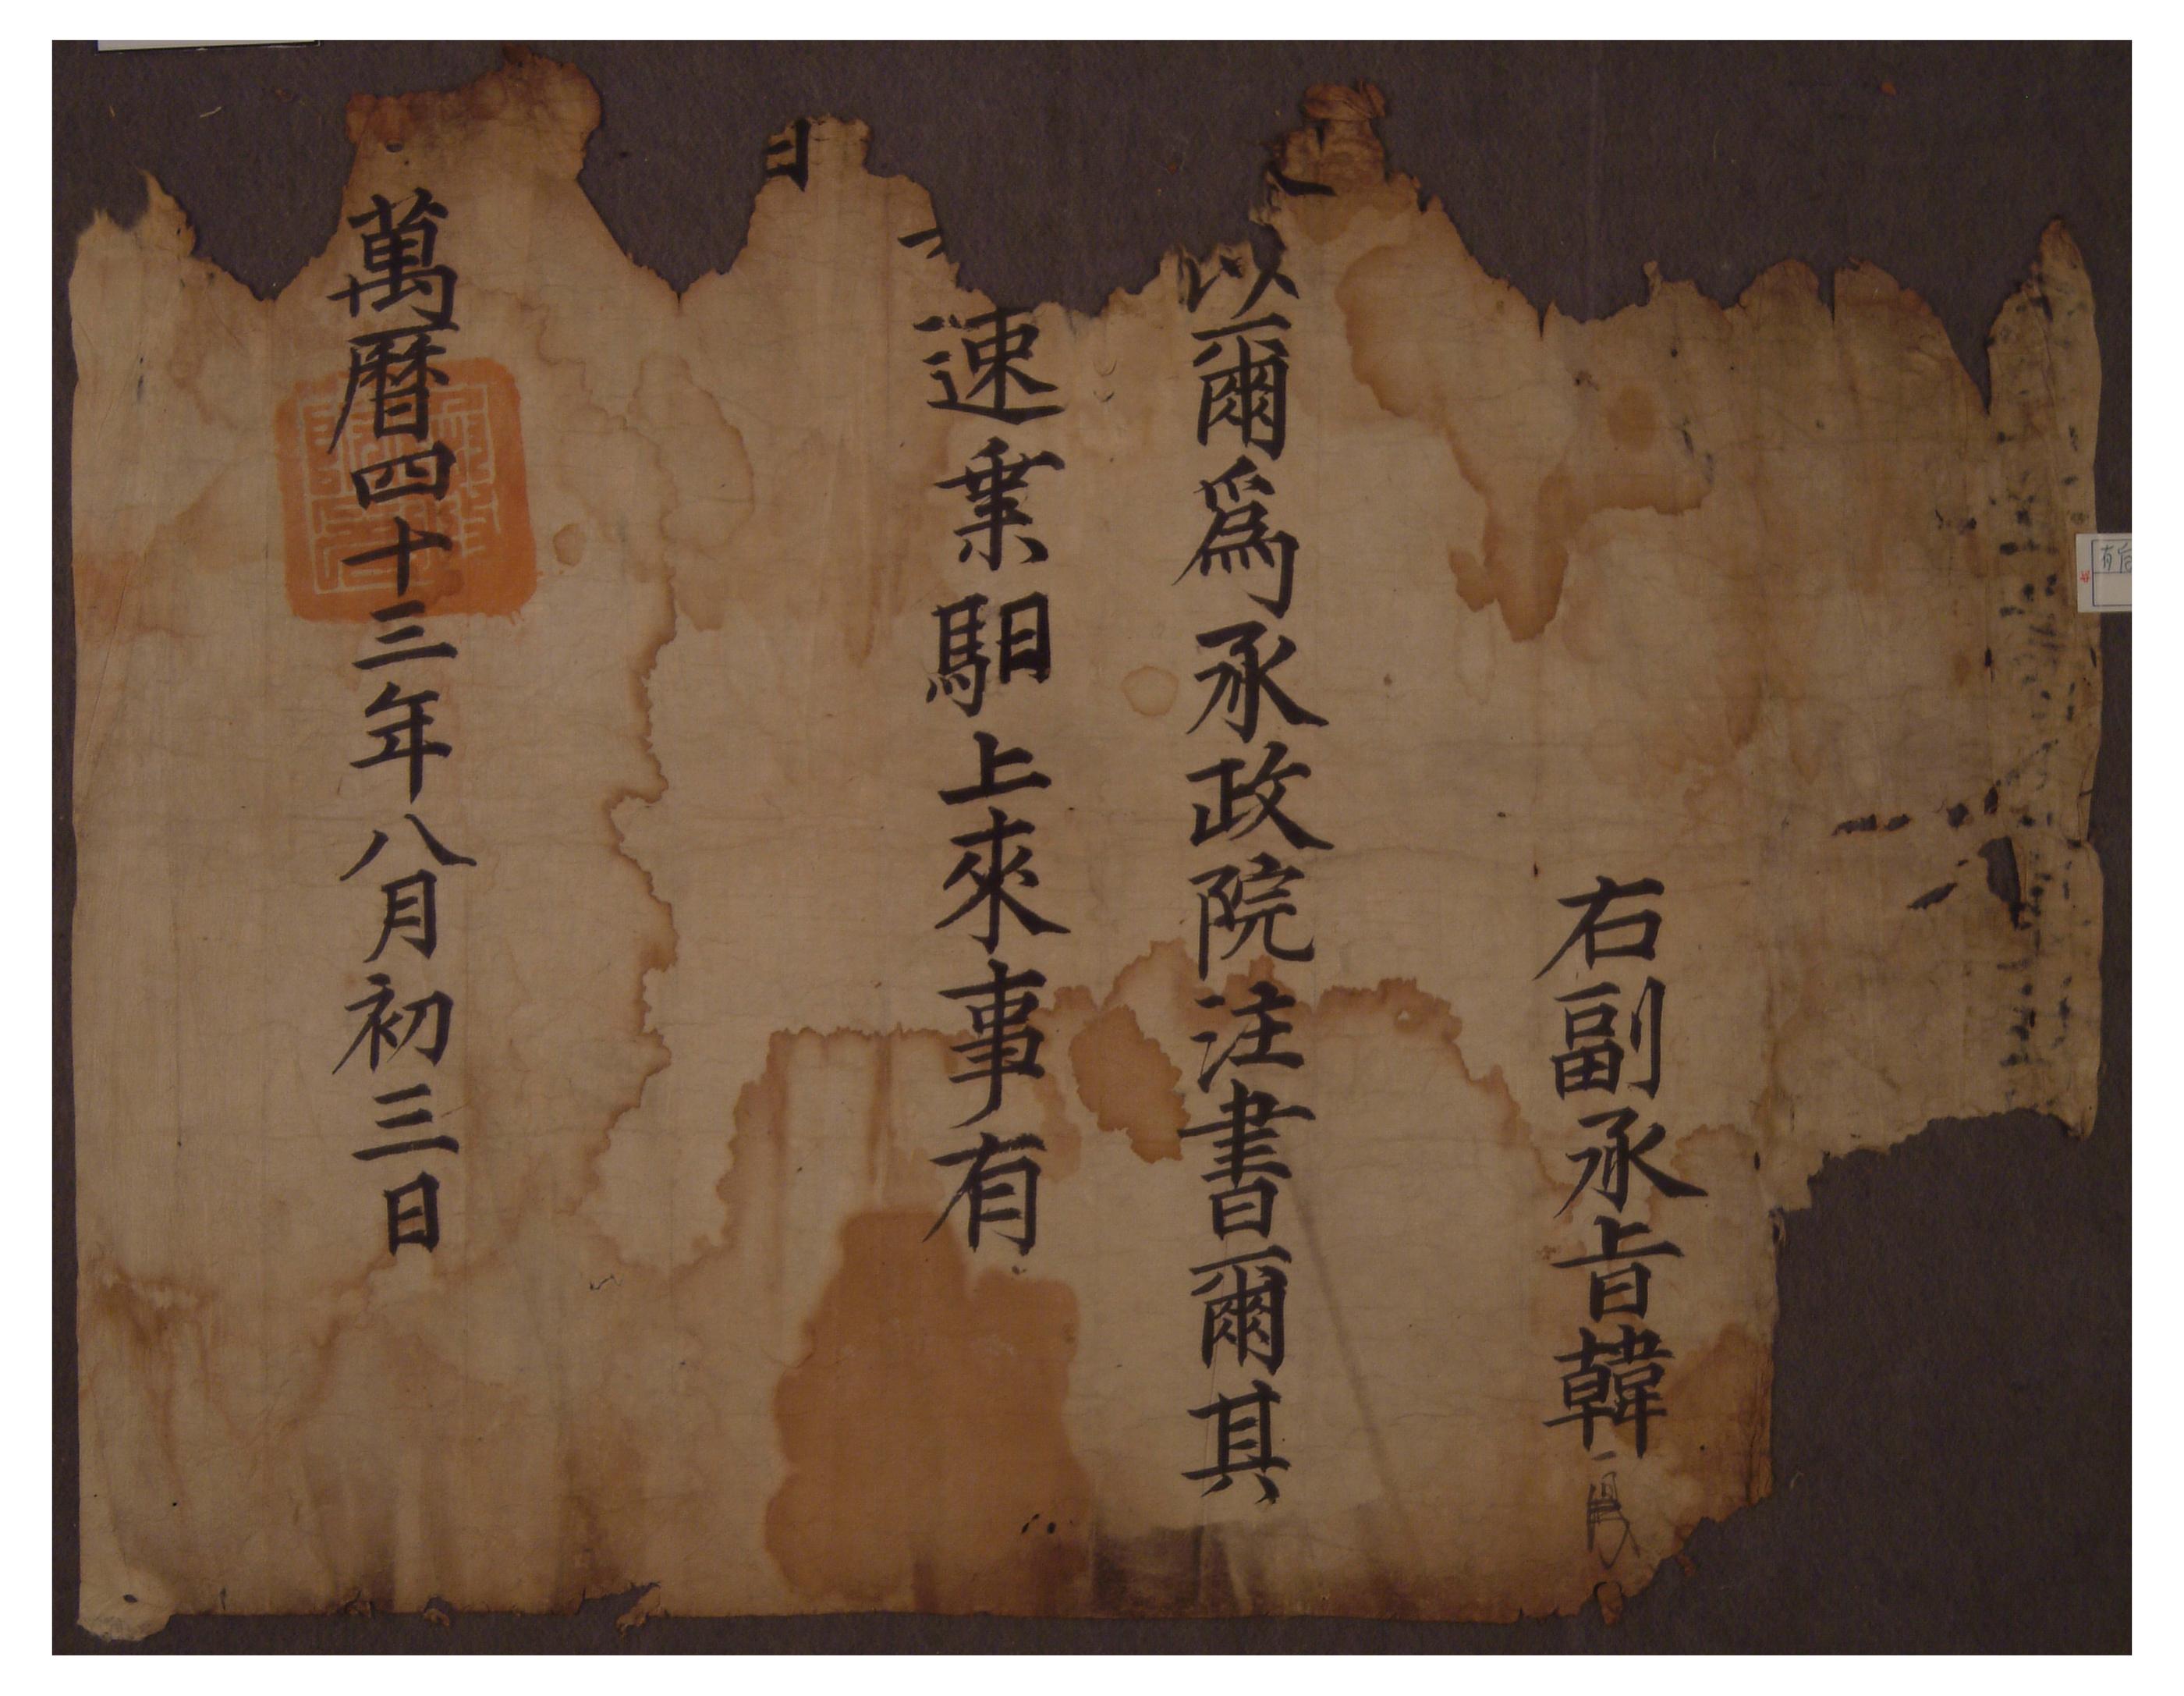 右副承旨韓
以爾爲承政院注書爾其
速乗馹上來事有
旨
萬曆四十三年八月初三日